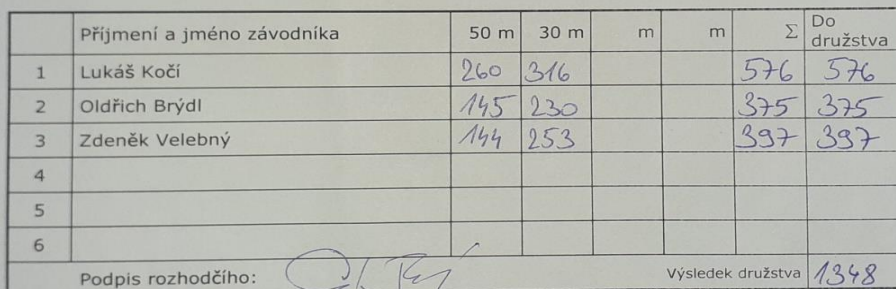 Příjmení a jméno závodníka 50 m 30 m m m Σ Do družstva
1 Lukáš Kočí 260 316 576 576
2 Oldřich Brýdl 145 230 375 375
3 Zdeněk Velebný 144 253 397 397
4
5
6
Podpis rozhodčího: Výsledek družstva 1348